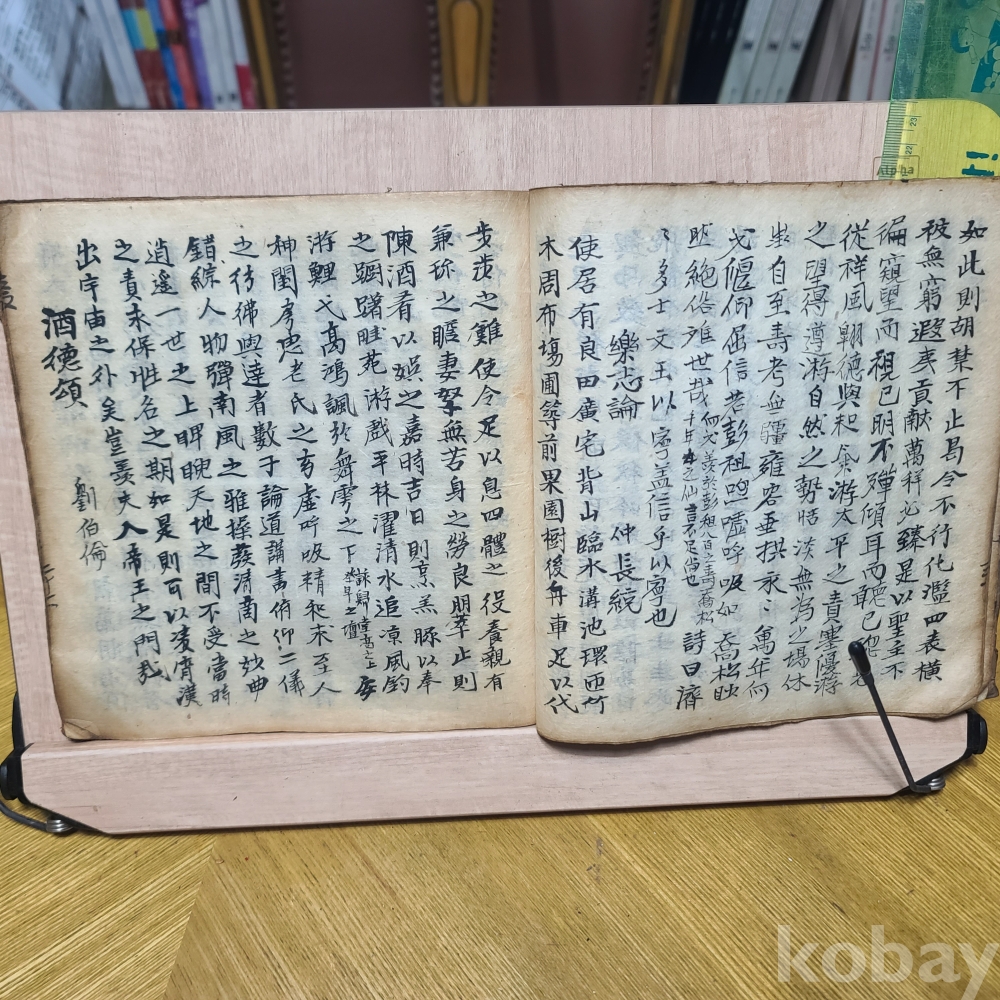 如此則胡禁不止曷令不行化濫四表橫
被無窮遐夷貢献萬祥必臻是以聖主不
徧窺望而視已明不殫傾耳而聽已聰恩
從祥風翺德與和氣游太平之責塞優游
之望得遵游自然之勢恬淡無為之場休
自至壽考無疆雍容垂拱永〻萬年何
必偃仰屈信若彭祖呴噓呼吸如喬松眇
然絶俗離世哉 詩曰濟
〻多士文王以寧盖信乎以寧也
樂志論 仲長統
使居有良田廣宅背山臨水溝池環匝竹
木周布塲圃築前果園樹後舟車足以代
步涉之難使令足以息四體之役養親有
兼珎之膳妻孥無苦身之勞良朋萃止則
陳酒肴以娛之嘉時吉日則烹羔豚以奉
之躕躇畦苑游戲平林濯清水追凉風釣
游鯉弋高鴻諷於舞雩之下詠歸高堂之上 安
神閨房思老氏之玄虛呼吸精和求至人
之彷彿與達者數子論道講書俯仰二儀
錯綜人物彈南風之雅操發清商之妙曲
逍遙一世之上睥睨天地之間不受當時
之責永保性名之期如是則可以凌霄漢
出宇宙之外矣豈羨夫入帝王之門哉
酒德頌 劉伯倫
kobay